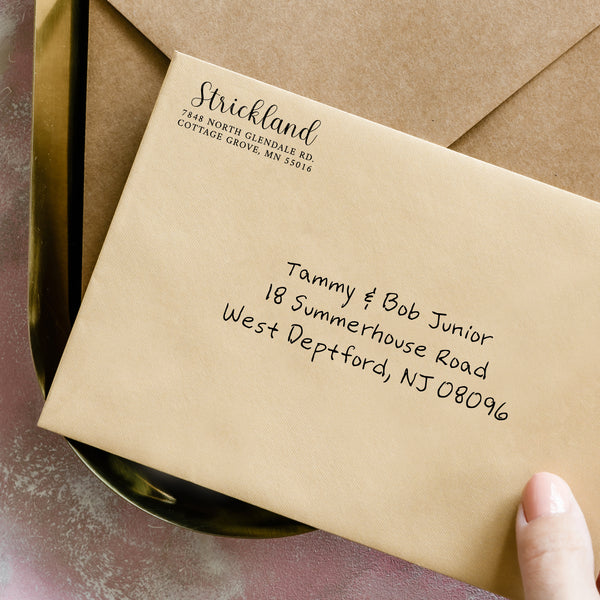 Strickland
7848 NORTH GLENDALE RD.
COTTAGE GROVE, MN 55016
Tammy & Bob Junior
18 Summerhouse Road
West Deptford, NJ 08096